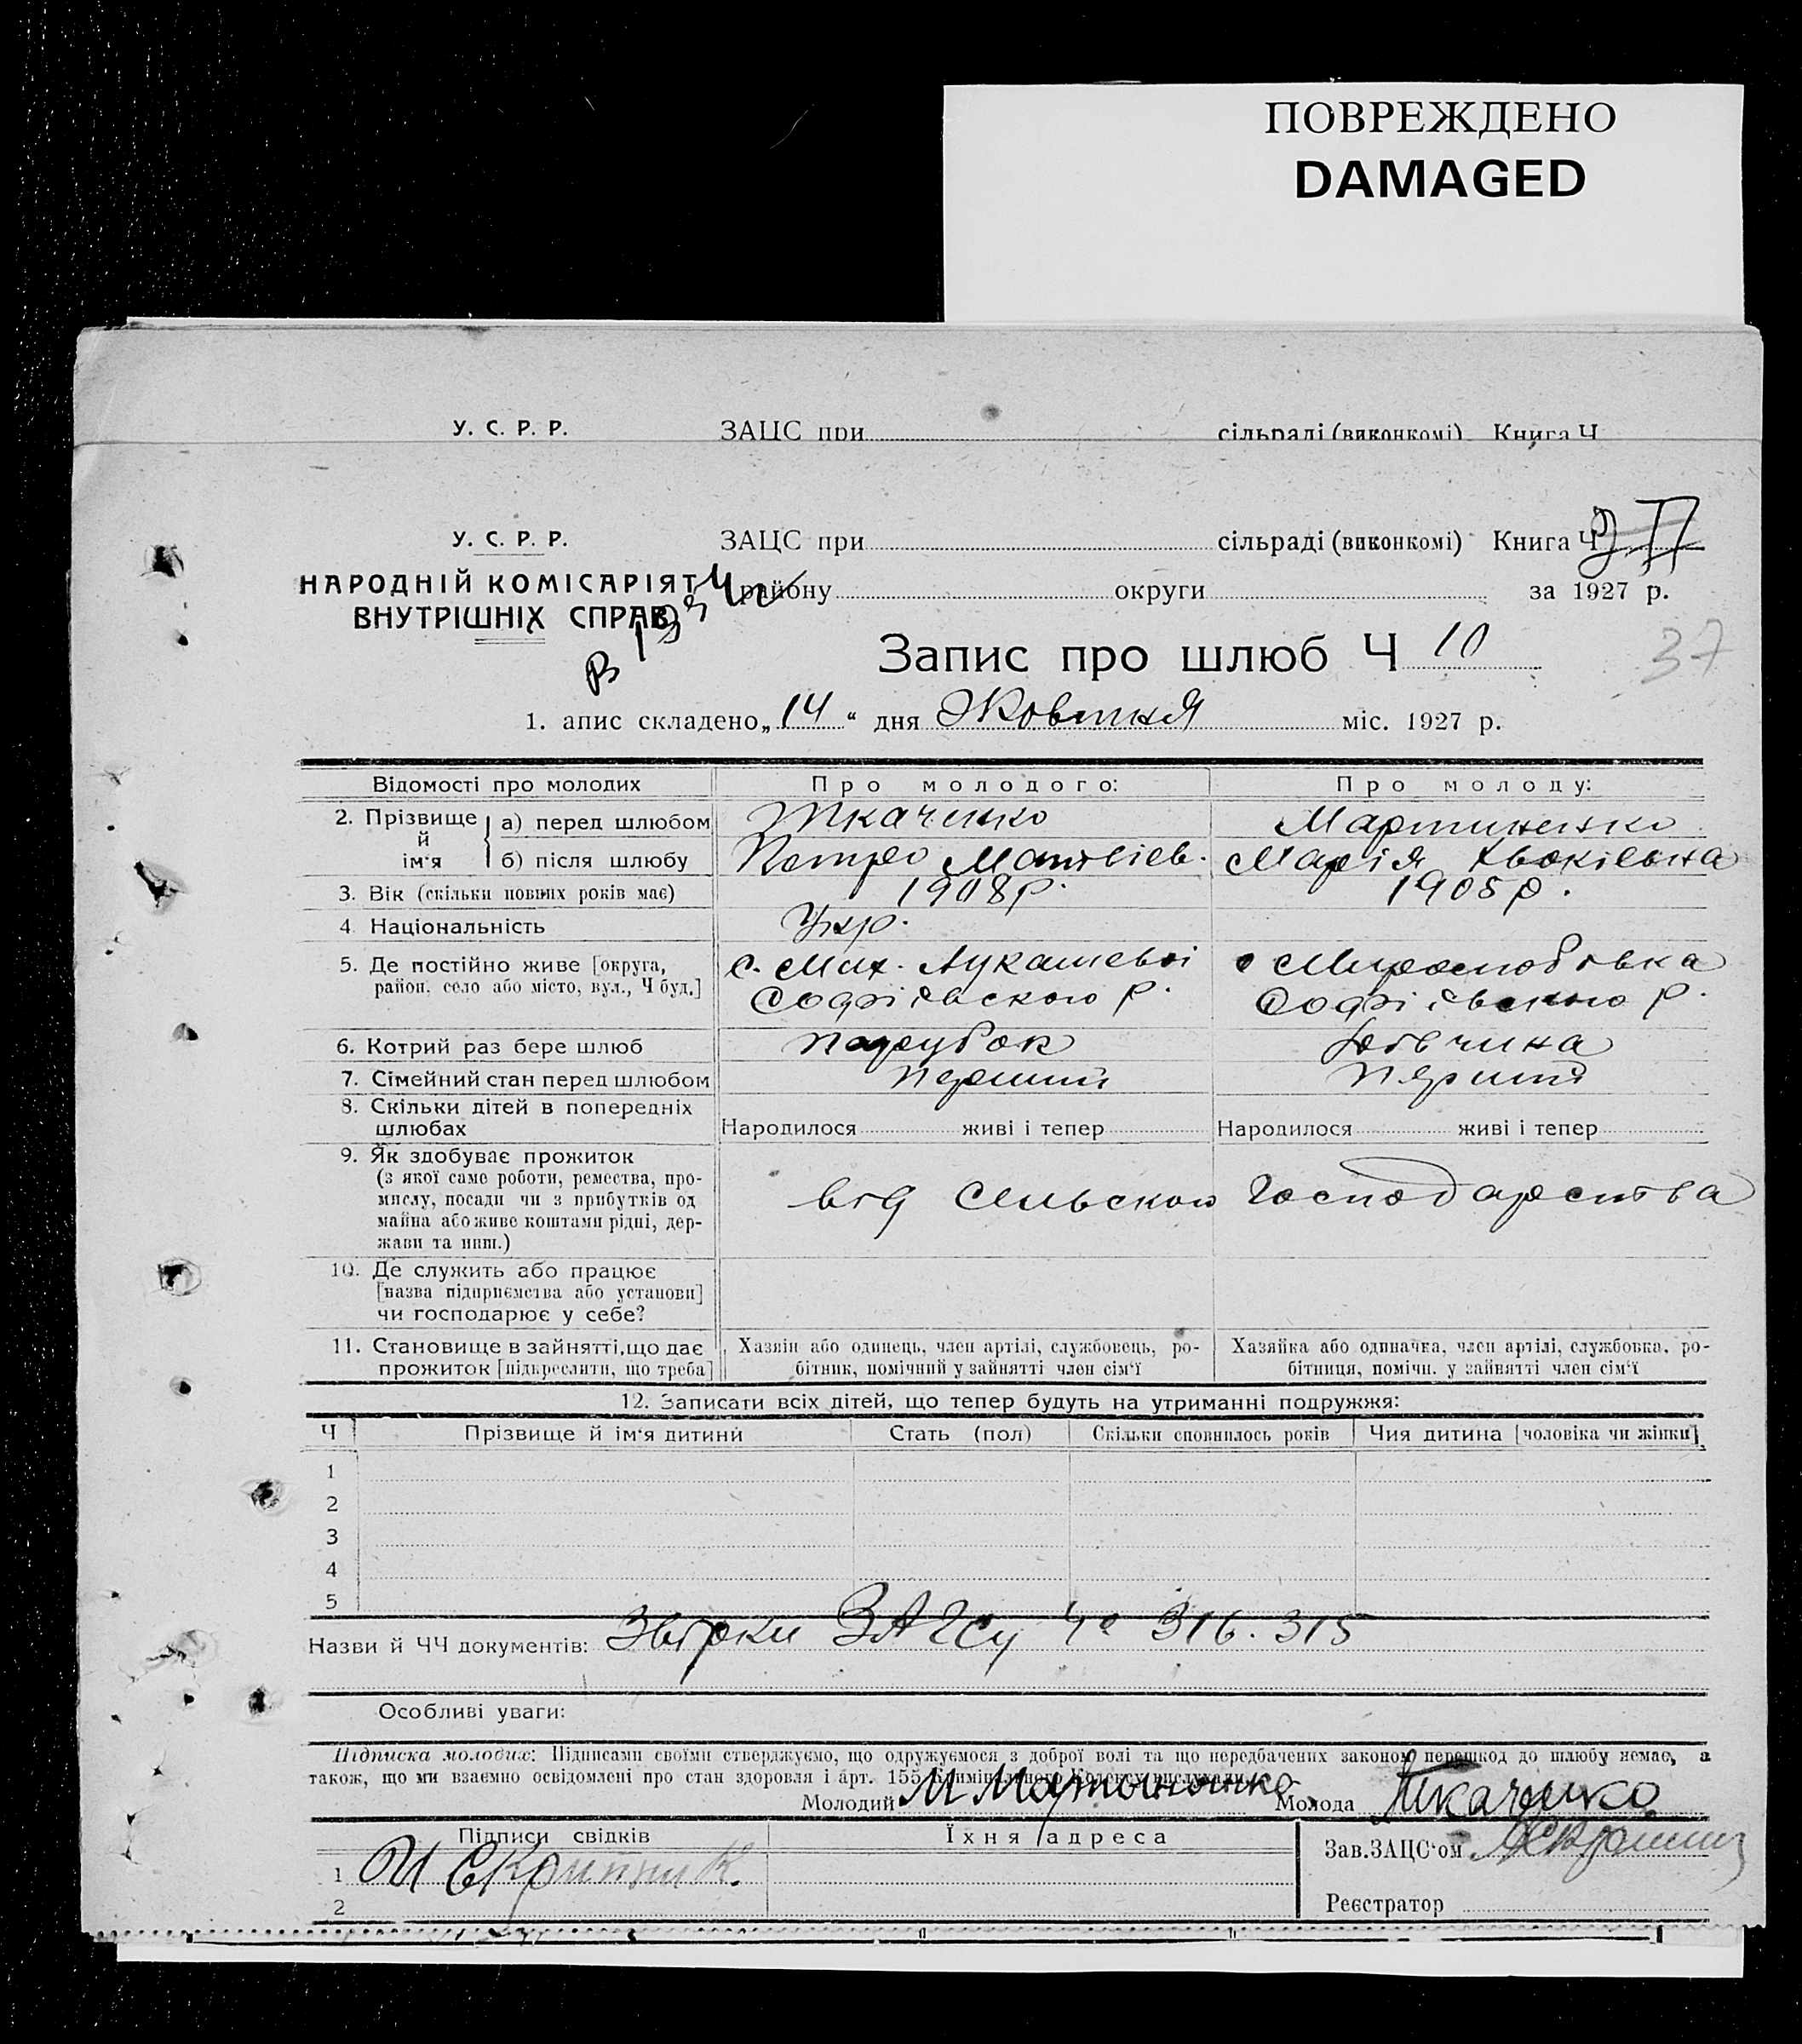 ПОВРЕЖДЕНО
DAMAGED
У. С. Р. Р. ЗАЦС при сільраді (виконкомі) Книга Ч
У. С. Р. Р. ЗАЦС при сільраді (виконкомі) Книга Ч
НАРОДНІЙ КОМІСАРІЯТ району округи за 1927 р.
ВНУТРІШНІХ СПРАВ
Запис про шлюб Ч 10
37
1. апис складено „14“ дня Жовтня міс. 1927 р.
Відомості про молодих Про молодого: Про молоду:
2. Прізвище й ім‘я а) перед шлюбом Ткаченко Мартиненко
б) після шлюбу Петро Матвієв. Марія
3. Вік (скільки повних років має) 1908 р. 1905 р.
4. Національність Укр.
5. Де постійно живе [округа, с. Мих. Лукашеві с Миролюбовка
район, село або місто, вул., Ч буд.] Софіївского р. Софіївского р.
6. Котрий раз бере шлюб парубок дівчина
7. Сімейний стан перед шлюбом перший перший
8. Скільки дітей в попередніх
шлюбах Народилося живі і тепер Народилося живі і тепер
9. Як здобуває прожиток
(з якої саме роботи, ремества, про-
мислу, посади чи з прибутків од від сельского Господарства
майна або живе коштами рідні, дер-
жави та инш.)
10. Де служить або працює
[назва підприємства або установи]
чи господарює у себе?
11. Становище в зайнятті, що дає Хазяїн або одинець, член артілі, службовець, ро- Хазяйка або одиначка, член артілі, службовка, ро-
прожиток [підкреслити, що треба] бітник, помічний у зайнятті член сім‘ї бітниця, помічн. у зайнятті член сім‘ї
12. Записати всіх дітей, що тепер будуть на утриманні подружжя:
Ч Прізвище й ім‘я дитини Стать (пол) Скільки сповнилось років Чия дитина [чоловіка чи жінки]
1
2
3
4
5
Назви й ЧЧ документів: Звірки ЗАГСу 316. 315
Особливі уваги:
Підписка молодих: Підписами своїми стверджуємо, що одружуємося з доброї волі та що передбачених законом перешкод до шлюбу немає, а
також, що ми взаємно освідомлені про стан здоровля і арт. 155 Кримінального Кодексу вислухали.
Молодий М Мартыненко Молода Ткаченко
Підписи свідків Їхня адреса Зав. ЗАЦС‘ом
1 И Скрипник.
2 Реєстратор